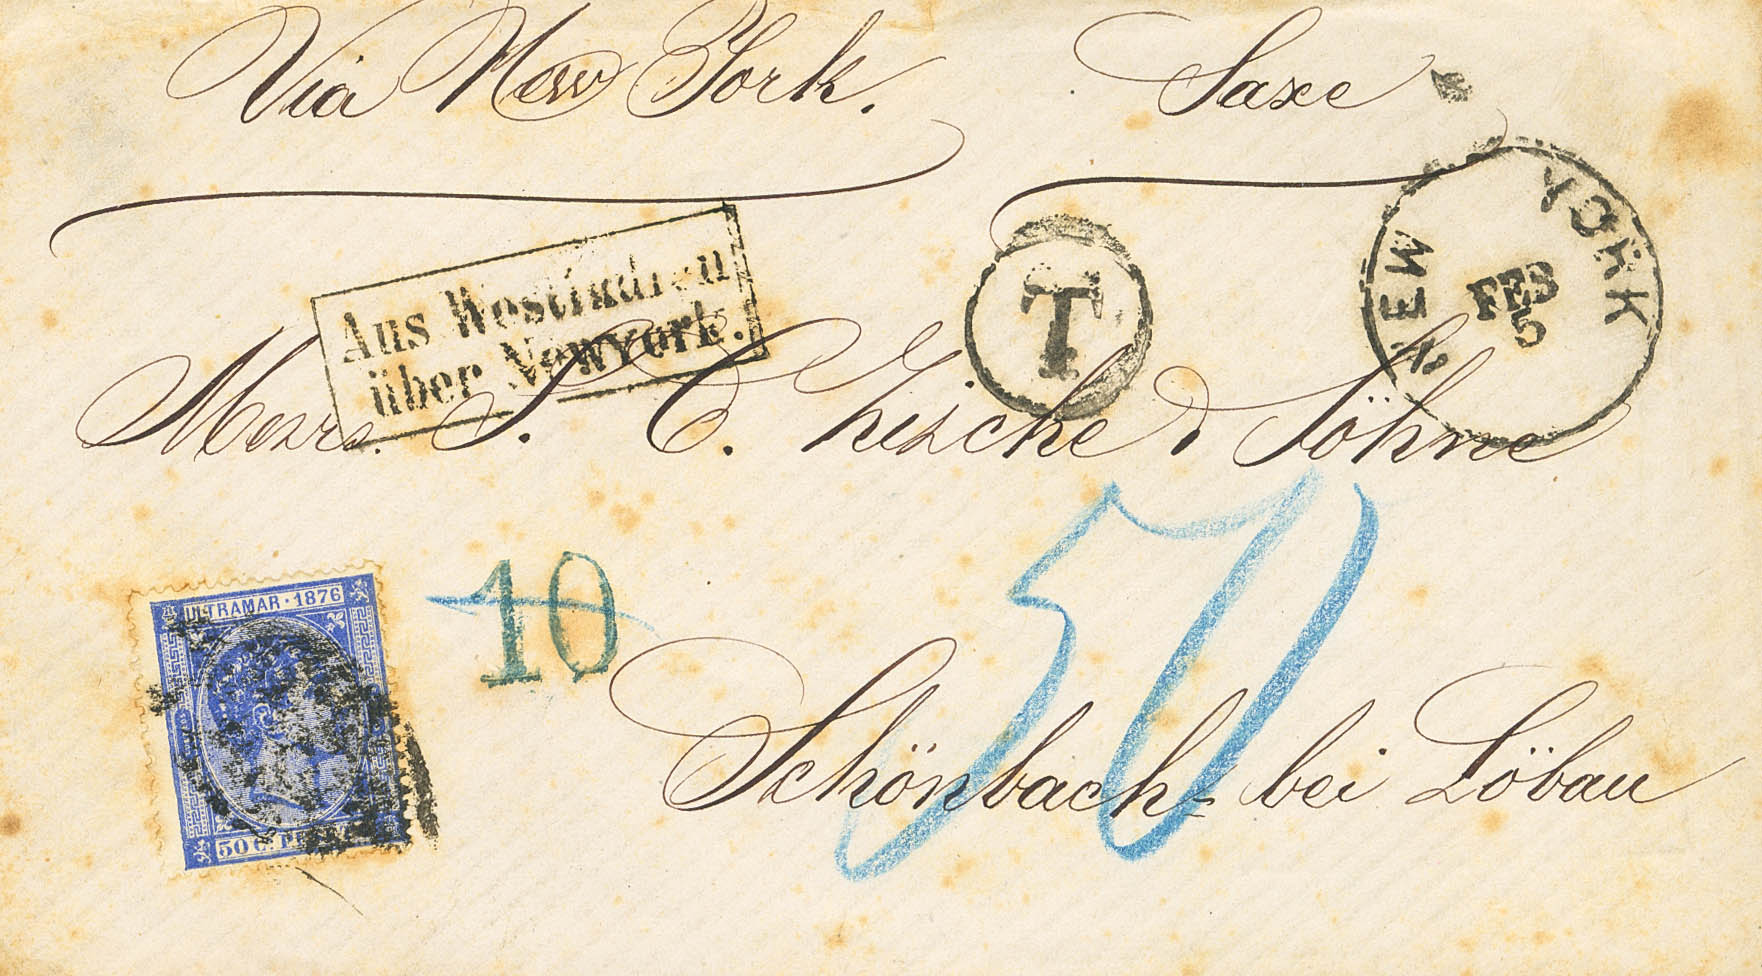 Via New York. Saxe
NEW YORK
FEB
5
Aus Westindien
über Newyork.
T
Messrs. P. C. & Söhne
50
10
ULTRAMAR · 1876
50 C. PESETA
Schönbach- bei Löbau